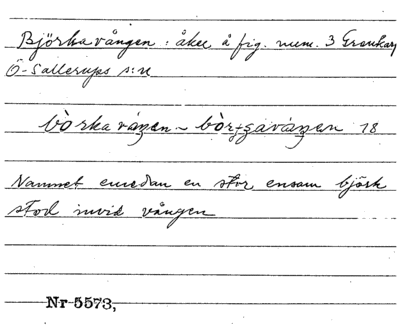 Björkavången : åker å fig. num. 3 Grankarp
Ö-Sallerups s:n
bòrkavåŋen ~ bòrgavåŋen 18
Namnet emedan en stor ensam björk
stod invid vången
Nr 5573,